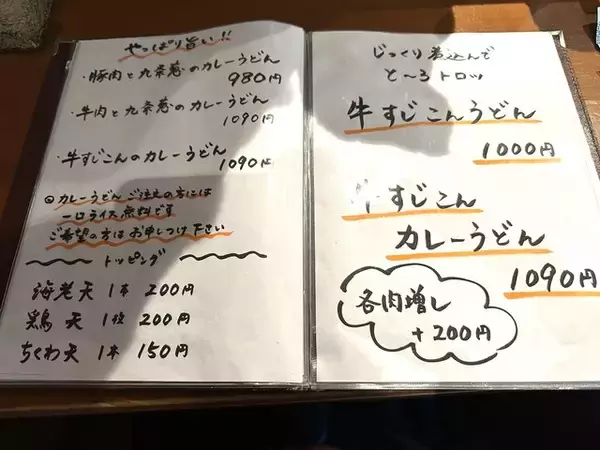 やっぱり旨い!!
・豚肉と九条葱のカレーうどん
980円
・牛肉と九条葱のカレーうどん
1090円
・牛すじこんのカレーうどん
1090円
◎カレーうどんご注文の方には
一口ライス無料です
ご希望の方はお申しつけ下さい
トッピング
海老天 1本 200円
鶏天 1枚 200円
ちくわ天 1本 150円
じっくり煮込んで
と〜ろトロッ
牛すじこんうどん
1000円
牛すじこん
カレーうどん
1090円
各肉増し
+200円